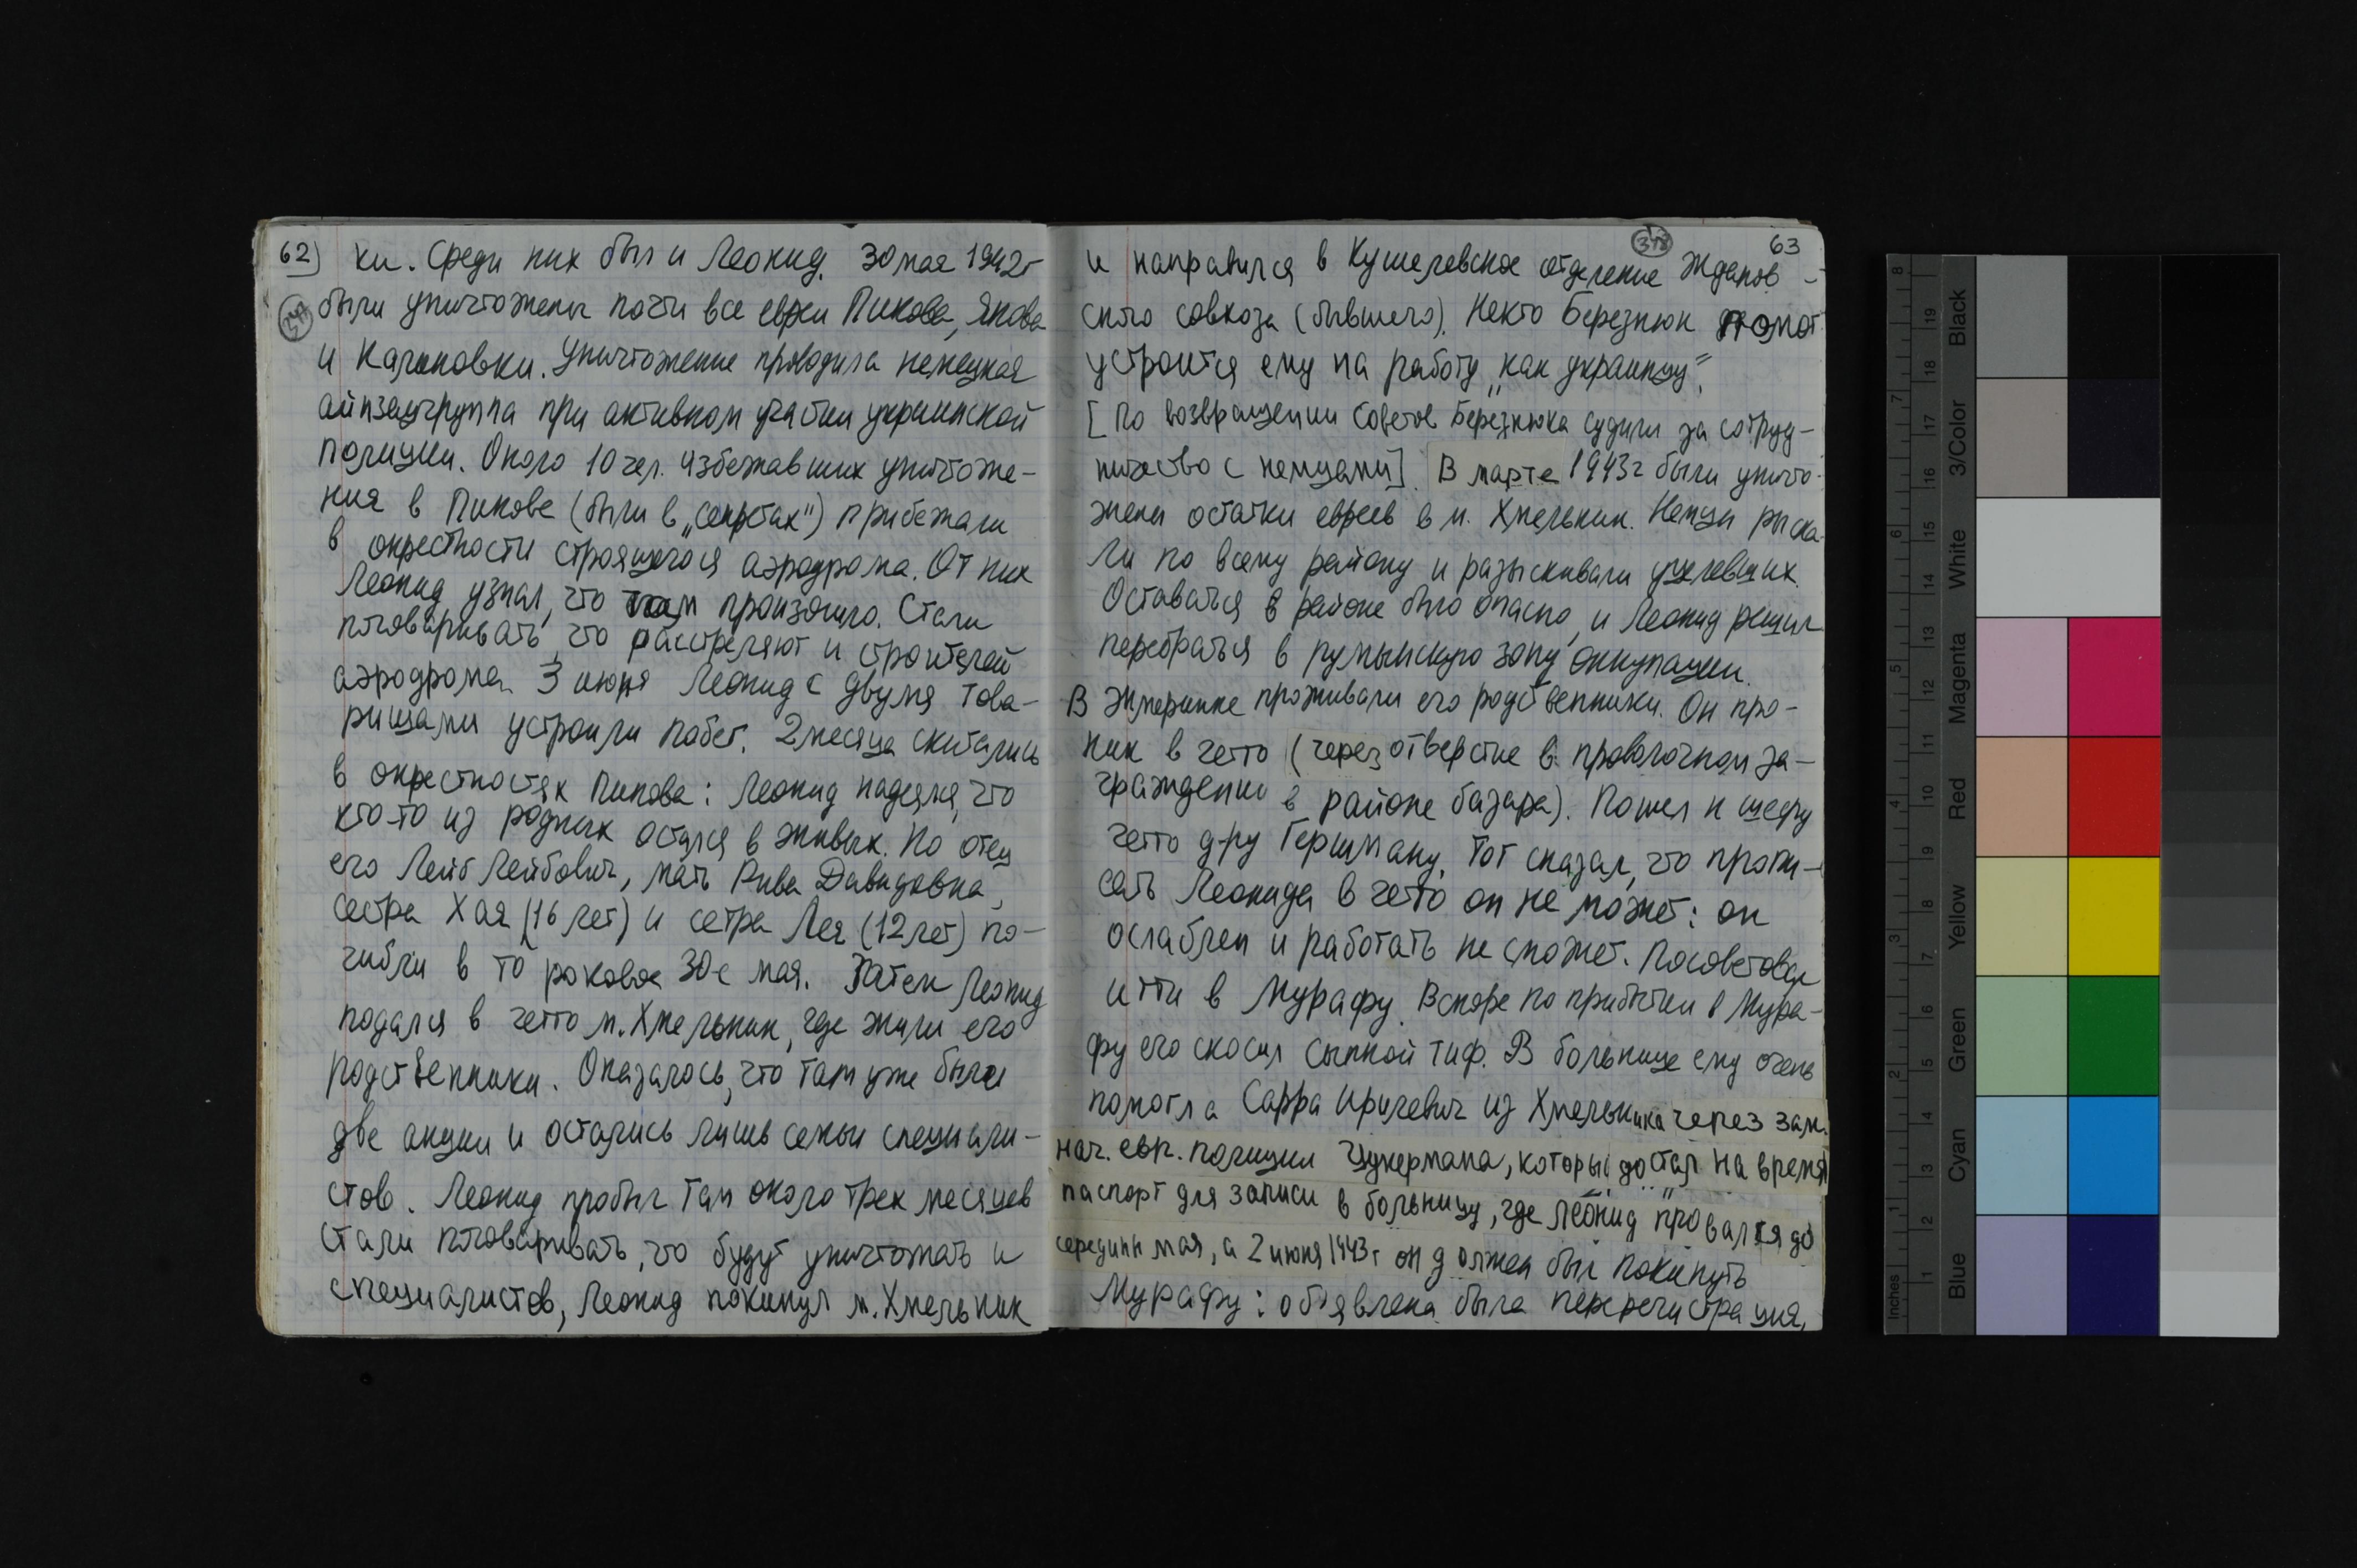 62) ки. Среди них был и Леонид. 30 мая 1942г
347 были уничтожены почти все евреи Пикова, Янова
и Калиновки. Уничтожение проводила немецкая
айнзацгруппа при активном участии украинской
полиции. Около 10 чел. избежавших уничтоже-
ния в Пикове (были в „секретах") прибежали
в окрестности строящегося аэродрома. От них
Леонид узнал, что там произошло. Стали
поговаривать, что расстреляют и строителей
аэродрома. 3 июня Леонид с двумя това-
рищами устроили побег. 2 месяца скитались
в окрестностях Пикова: Леонид надеялся, что
кто-то из родных остался в живых. Но отец
его Лейб Лейбович, мать Рива Давидовна,
сестра Хая (16 лет) и сетра Лея (12 лет) по-
гибли в то роковое 30-е мая. Затем Леонид
подался в гетто м. Хмельник, где жили его
родственники. Оказалось, что там уже были
две акции и остались лишь семьи специали-
стов. Леонид пробыл там около трех месяцев
Стали поговаривать, что будут уничтожать и
специалистов, Леонид покинул м. Хмельник
348 63
и направился в Кушелевское отделение Жданов-
ского совхоза (бывшего). Некто Березнюк помог
устроится ему на работу „как украинцу".
[По возвращении Советов Березнюка судили за сотруд-
ничество с немцами]. В марте 1943г были уничто-
жены остатки евреев в м. Хмельник. Немцы рыска-
ли по всему району и разыскивали уцелевших.
Оставаться в районе было опасно, и Леонид решил
перебраться в румынскую зону оккупации.
В Жмеринке проживали его родственники. Он про-
ник в гетто (через отверстие в проволочном за-
граждении в районе базара). Пошел к шефу
гетто д-ру Гершману. Тот сказал, что пропи-
сать Леонида в гетто он не может: он
ослаблен и работать не сможет. Посоветовал
итти в Мурафу. Вскоре по прибытии в Мура-
фу его скосил сыпной тиф. В больнице ему очень
помогла Сарра Ирилевич из Хмельника через зам.
нач. евр. полиции Цукермана, который достал на время
паспорт для записи в больницу, где Леонид провалялся до
середины мая, а 2 июня 1943г он должен был покинуть
Мурафу: объявлена была перерегистрация,